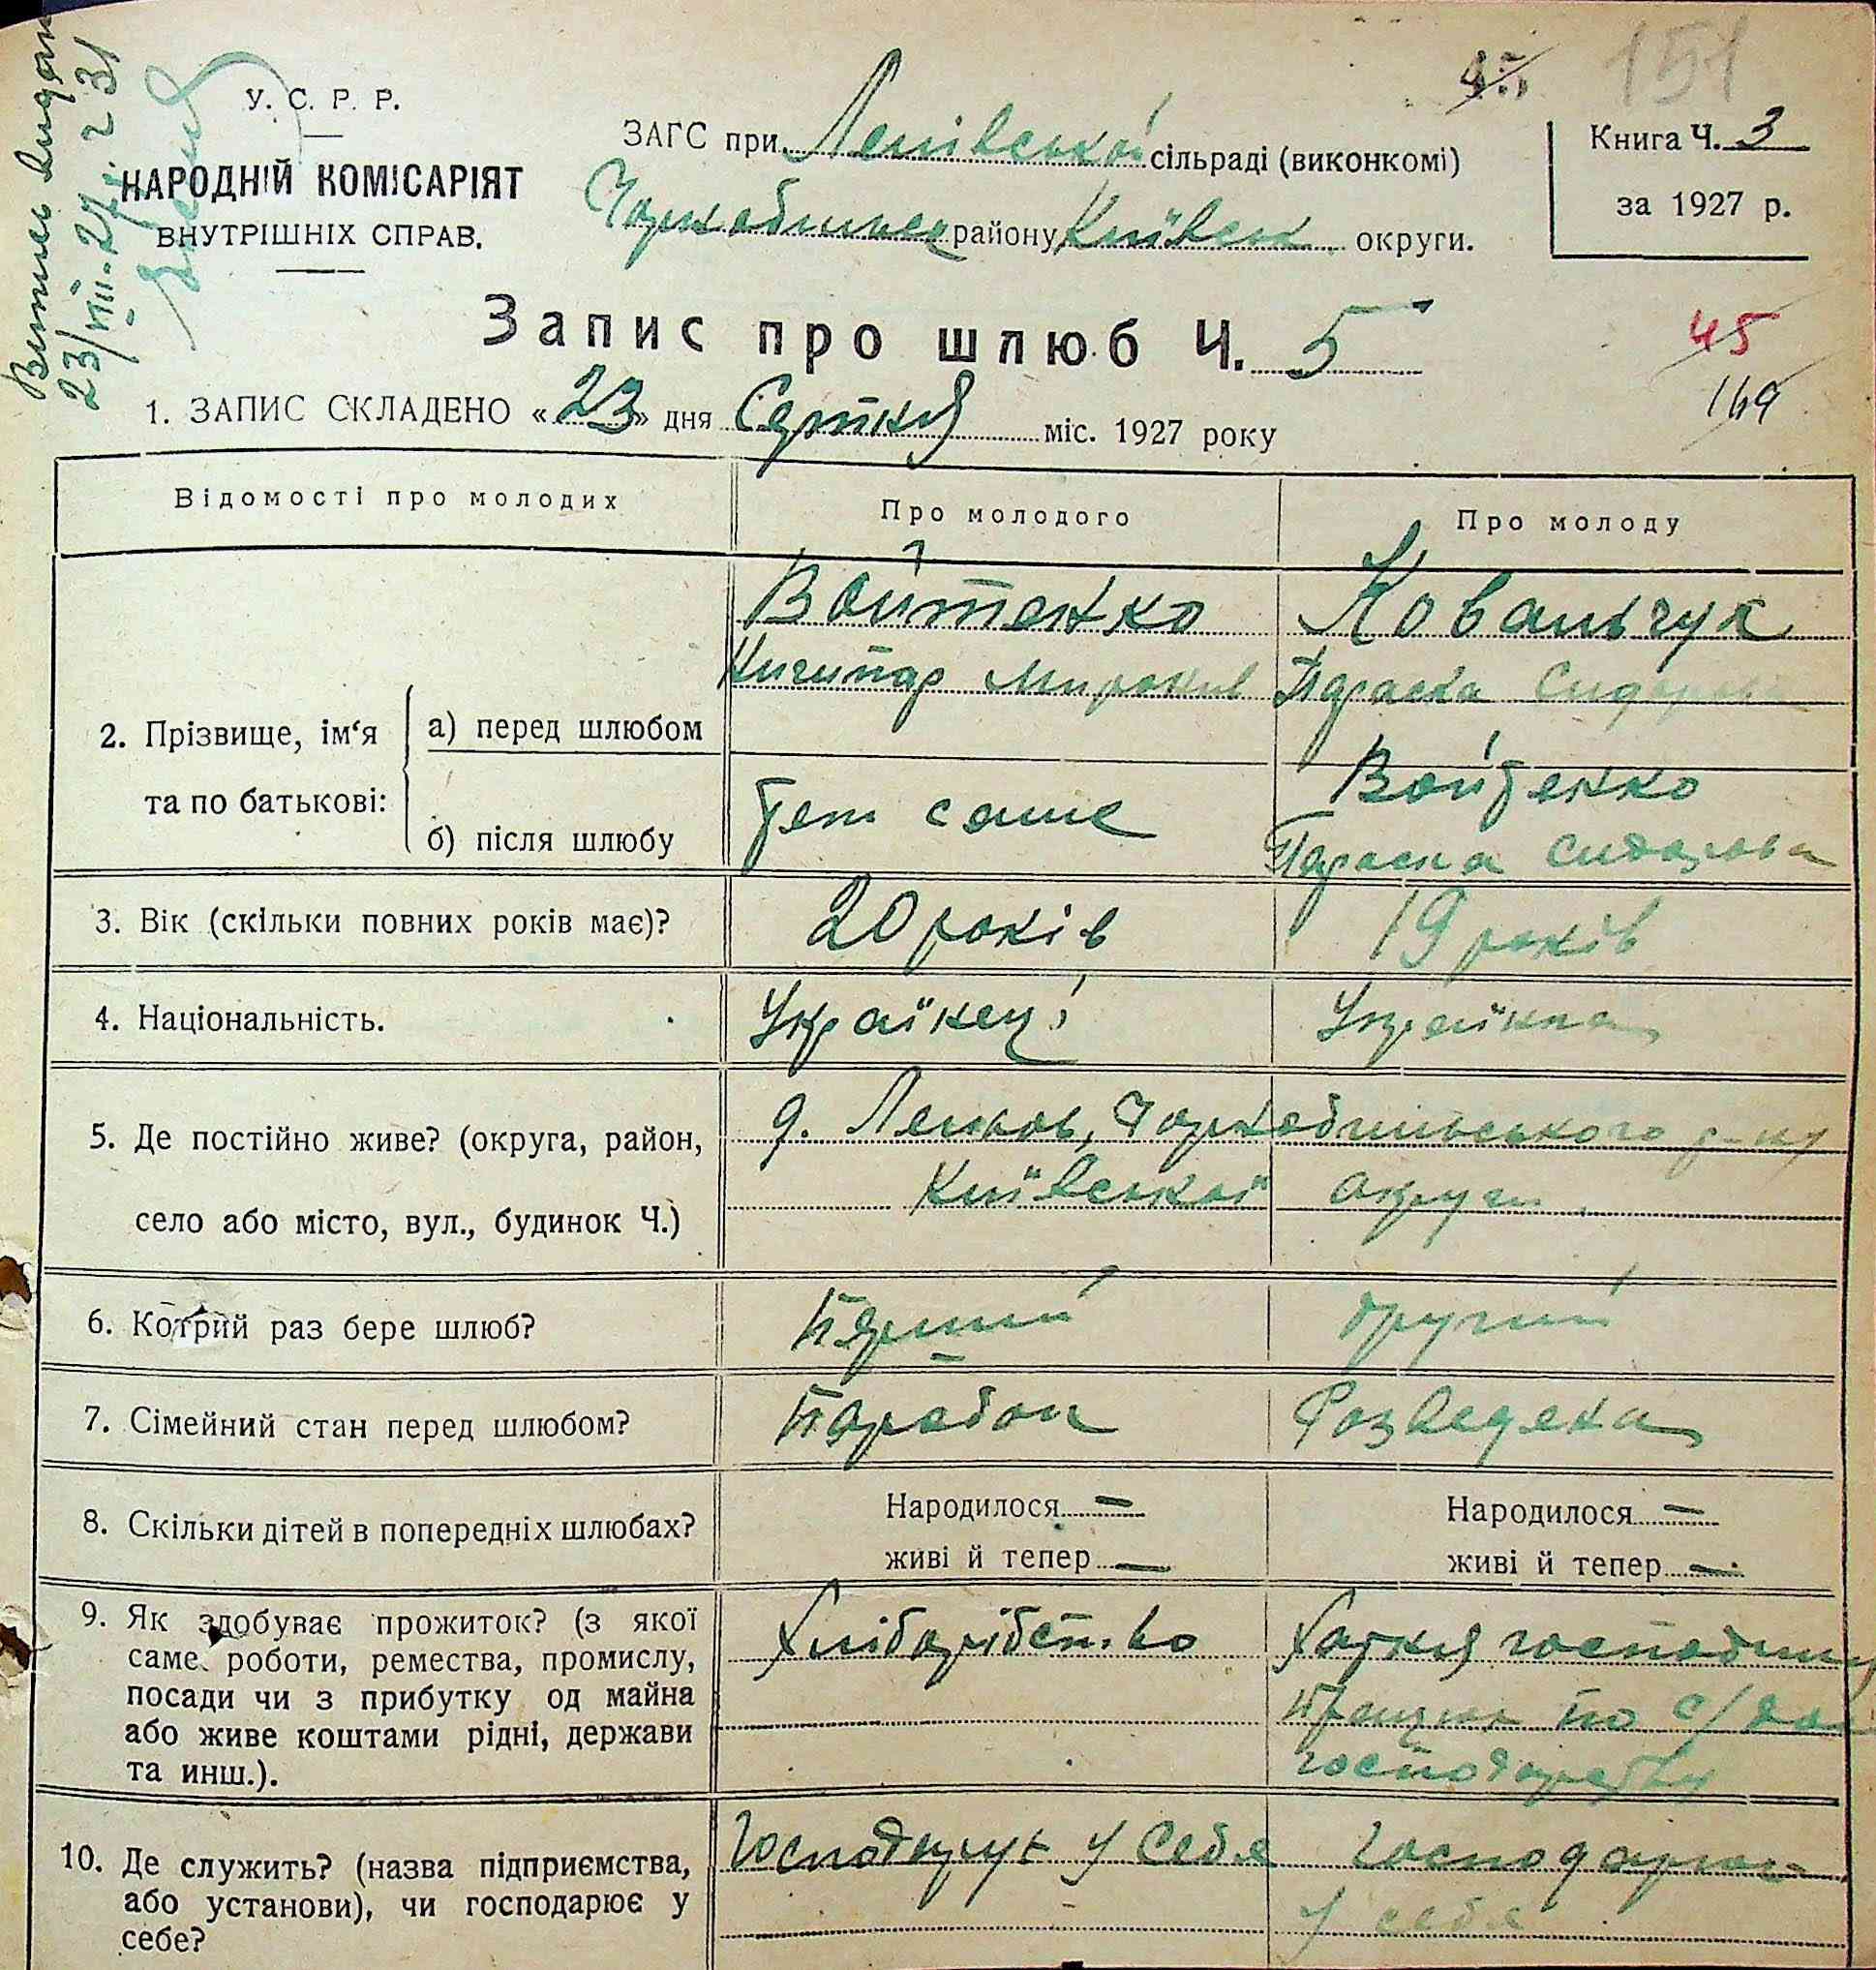 Витись
23/VIII-27 г. 231
У. С. Р. Р.
НАРОДНІЙ КОМІСАРІЯТ
ВНУТРІШНІХ СПРАВ.
45
151
ЗАГС при Лепівській сільраді (виконкомі)
району Київськ округи.
Книга Ч. 3
за 1927 р.
Запис про шлюб Ч. 5
45
169
1. ЗАПИС СКЛАДЕНО «23» дня Серпня міс. 1927 року
Відомості про молодих
Про молодого
Про молоду
2. Прізвище, ім‘я та по батькові:
а) перед шлюбом
Войтенко
Ничипар Миронів
Ковальчук
Параска Сидорова
б) після шлюбу
Теж саме
Войтенко
Параска Сидорова
3. Вік (скільки повних років має)?
20 років
19 років
4. Національність.
Українец
Українка
5. Де постійно живе? (округа, район,
село або місто, вул., будинок Ч.)
Чорнобильського р-ну
Київської округи
6. Котрий раз бере шлюб?
Перший
другий
7. Сімейний стан перед шлюбом?
Паробок
Розведена
8. Скільки дітей в попередніх шлюбах?
Народилося —
живі й тепер —
Народилося —
живі й тепер —
9. Як здобуває прожиток? (з якої
саме роботи, ремества, промислу,
посади чи з прибутку од майна
або живе коштами рідні, держави
та инш.).
Хліборобство
Хатня господиня
по с/
господарству
10. Де служить? (назва підприємства,
або установи), чи господарює у
себе?
у себе
у себе